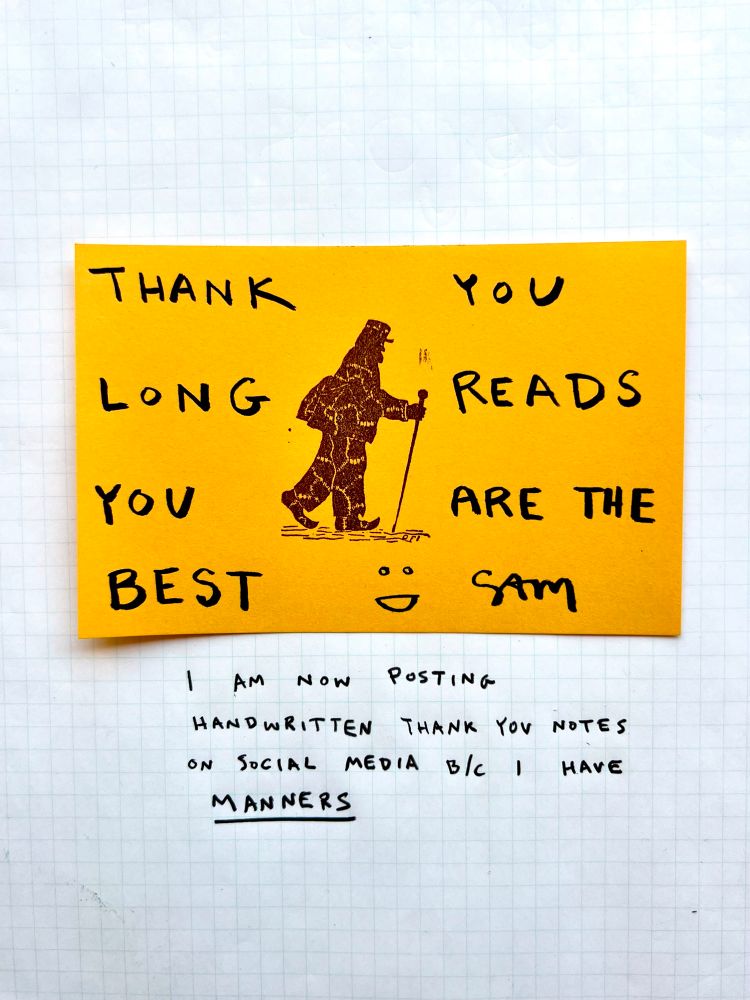 THANK YOU
LONG READS
YOU ARE THE
BEST SAM
I AM NOW POSTING
HANDWRITTEN THANK YOU NOTES
ON SOCIAL MEDIA B/C I HAVE
MANNERS